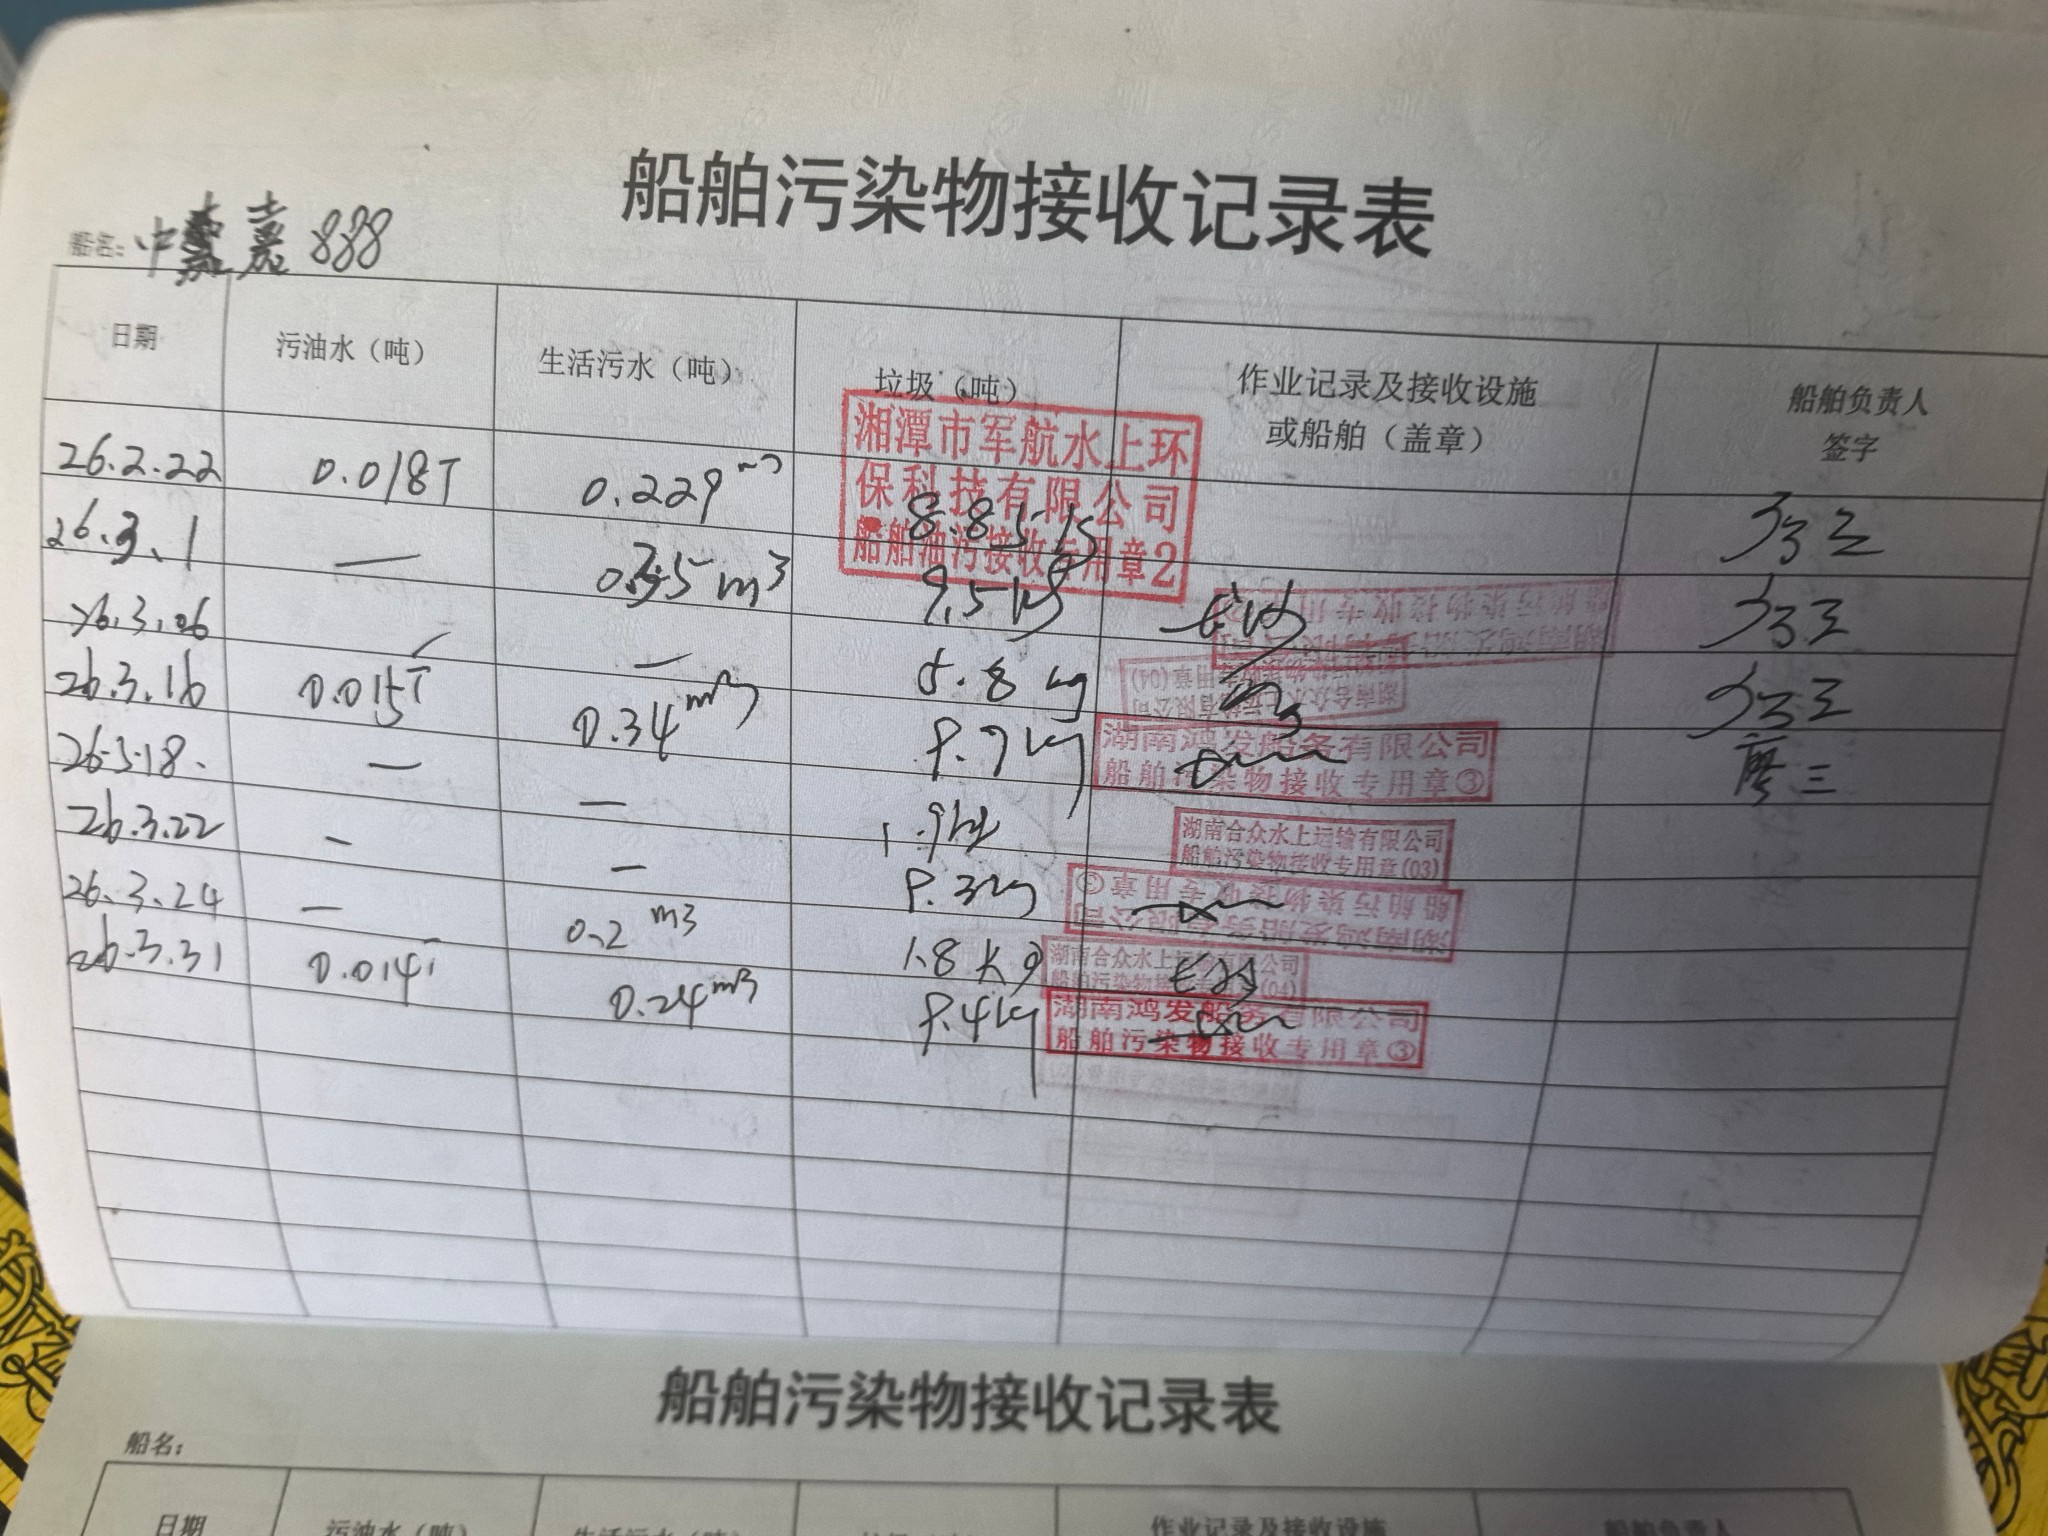 船舶污染物接收记录表
船名: 中嘉 888
日期 污油水（吨） 生活污水（吨） 垃圾（吨） 作业记录及接收设施 船舶负责人
或船舶（盖章） 签字
湘潭市军航水上环
保科技有限公司
船舶油污接收专用章2
26.2.22 0.018T 0.229
26.3.1 — m3 9.5kg
26.3.06 — 5.8 kg
26.3.16 0.015T 0.34m3 9.7kg
湖南鸿发船务有限公司
船舶污染物接收专用章③
26.3.18. — — 1.9 三
湖南合众水上运输有限公司
船舶污染物接收专用章(03)
26.3.22 — — 9.3kg
湖南鸿发船务有限公司
船舶污染物接收专用章③
26.3.24 — 0.2 m3 1.8 kg
湖南合众水上运输有限公司
船舶污染物接收专用章(04)
26.3.31 0.014T 0.24m3 9.4kg
湖南鸿发船务有限公司
船舶污染物接收专用章③
船舶污染物接收记录表
船名:
日期 污油水（吨） 生活污水（吨） 作业记录及接收设施 船舶负责人